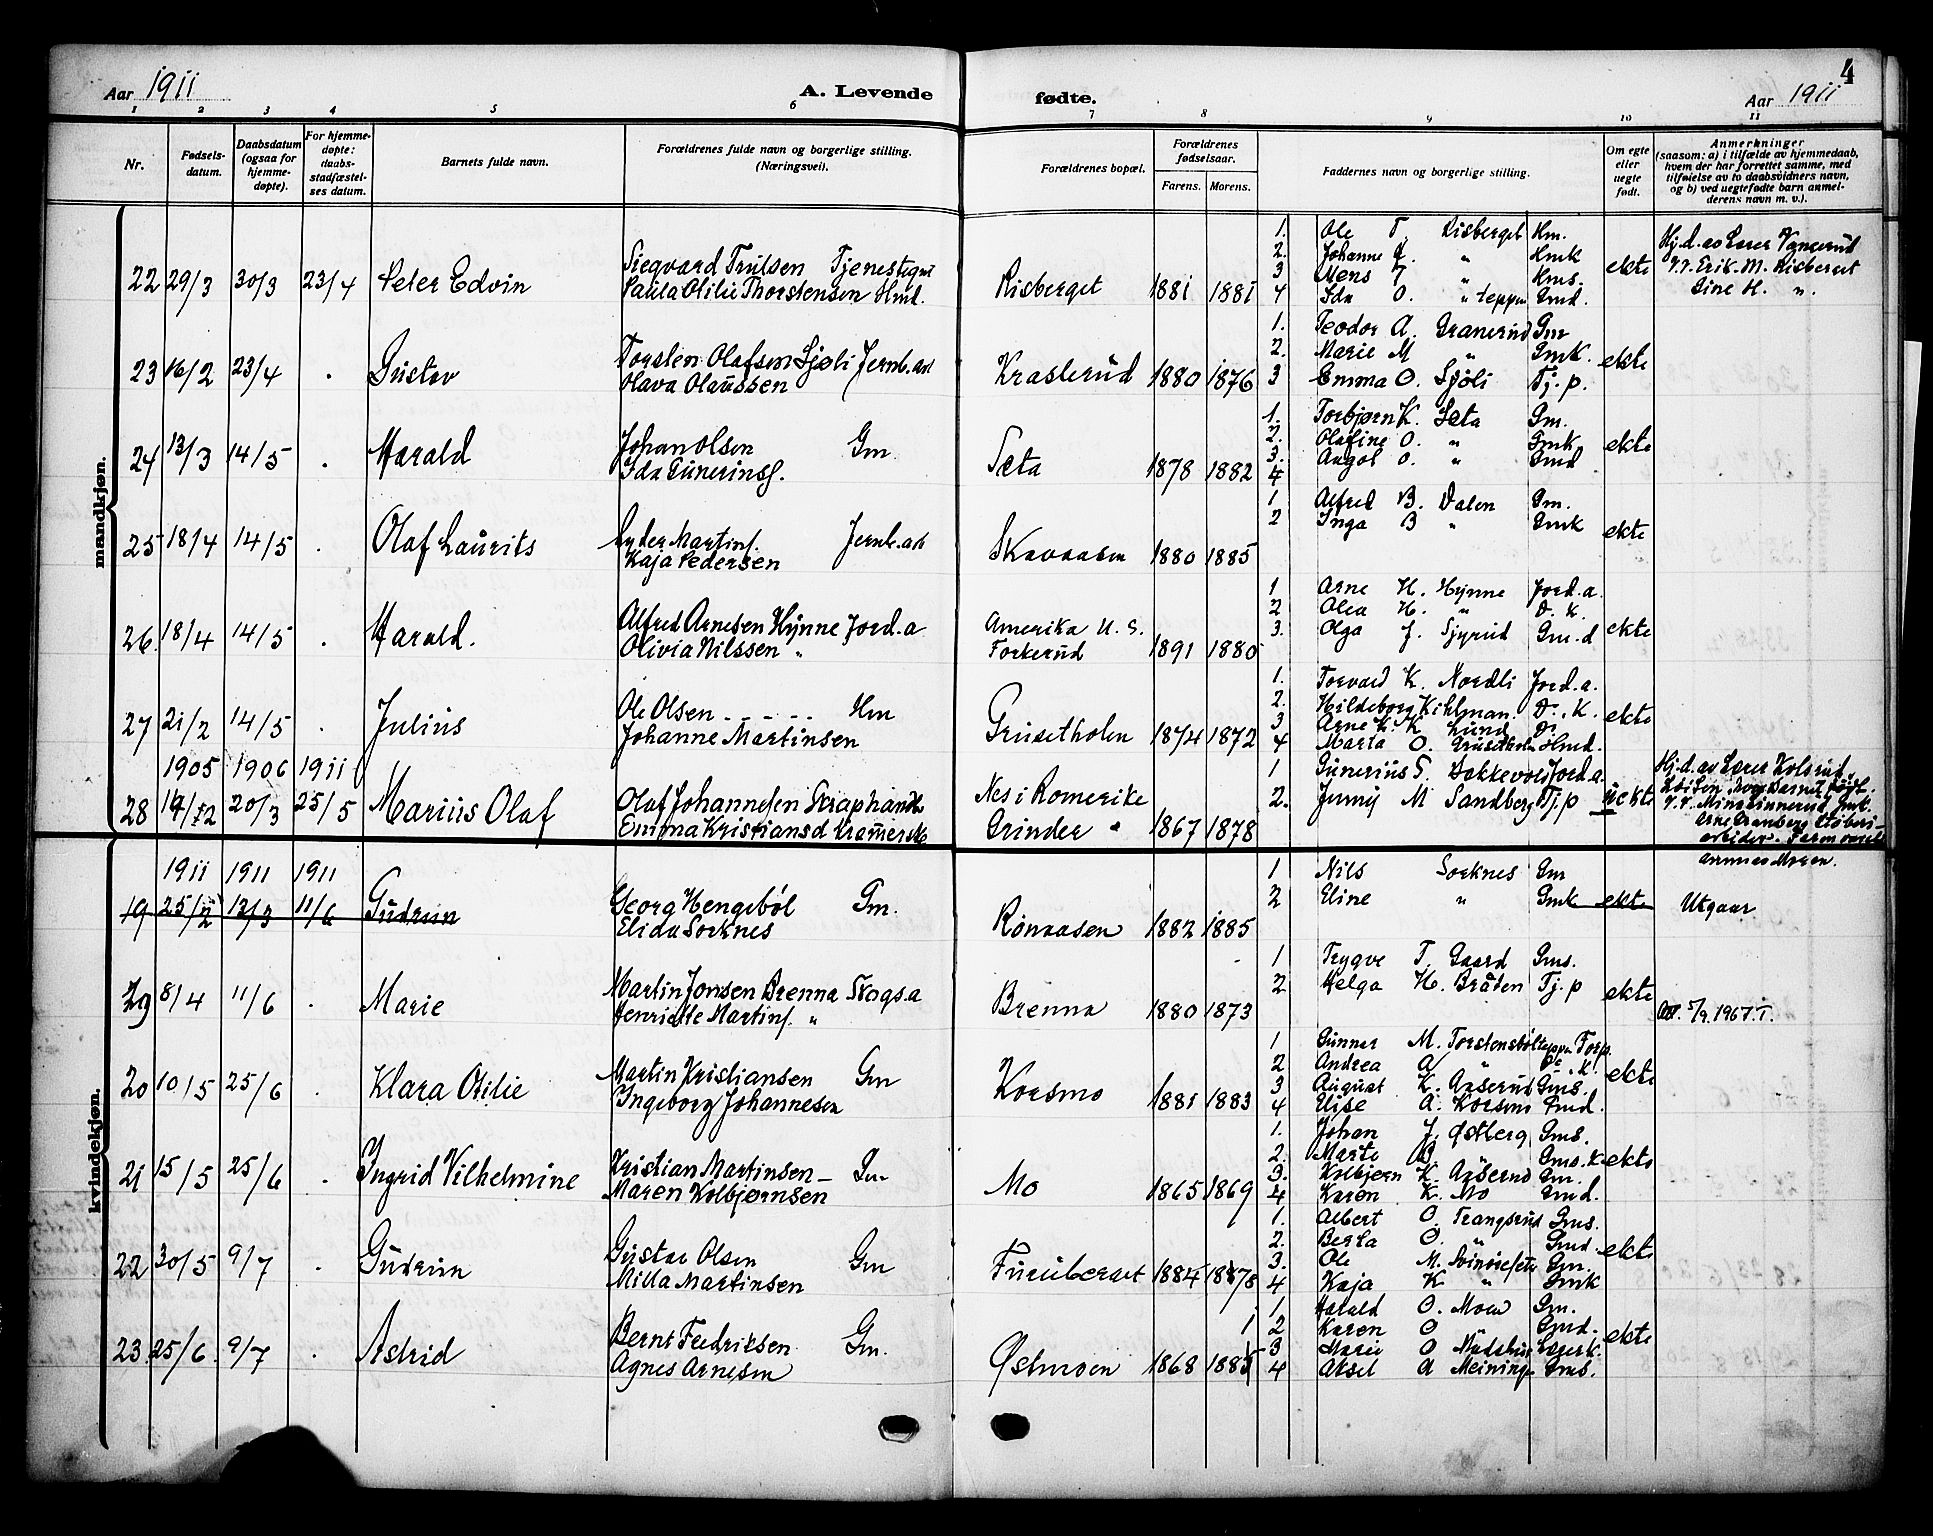 Aar 1911
A. Levende fødte.
4
Aar 1911
1 2 3 4 5 6 7 8 9 10 11
Nr.
Fødsels-
datum.
Daabsdatum
(ogsaa for
hjemme-
døpte).
For hjemme-
døpte:
daabs-
stadfæstel-
ses datum.
Barnets fulde navn.
Forældrenes fulde navn og borgerlige stilling.
(Næringsvei).
Forældrenes bopæl.
Forældrenes
fødselsaar.
Farens. Morens.
Faddernes navn og borgerlige stilling.
Om egte
eller
uegte
født.
Anmerkninger
(saasom: a) i tilfælde av hjemmedaab,
hvem der har forrettet samme, med
tilføielse av to daabsvidners navn,
og b) ved uegtefødte barn anmel-
derens navn m. v.).
mandkjøn.
22 29/3 30/3 23/4 Peter Edvin
Siegvard Trulsen
Paula Otilie Thorstensen Hmd.
Risberget 1881 1881
1. Ole T. Risberget Hm.
2. Johanne " Hmk
3 Mens T " Hms.
4 Ida O. " teppen Gmd.
ekte
Hj.d. av Lærer
V.v. Erik M. Risberget
Line H. ".
23 16/2 23/4 . Gustav
Torsten Olafsen Sjøli Jernb.arb
Olava Olaussen
Krasterud 1880 1876
1. Teodor A. Granerud Gm
2. Marie M " Gmk.
3 Emma O. Sjøli Tj.p.
ekte
24 13/3 14/5 . Harald
Johan Olsen Gm.
Ida Gunerius.
Sæta 1878 1882
1. Torbjørn K. Sæta Gm.
2. Olafine O. " Gmk
3. O. " Gmd
4
ekte
25 18/4 14/5 . Olaf Laurits
Syder Martins. Jernb.arb
Kaja Pedersen
Skavaasen 1880 1885
1 Alfred B. Dalen Gm.
2 Inga B " Gmk
ekte
26. 18/4 14/5 . Harald.
Alfred Arnesen Hynne Jord.a
Olivia Nilssen "
Amerika U.S.
Forkerud 1891 1880
1 Arne H. Hynne Jord.a.
2 Olea H. " D. K.
3. Olga J. Sjyrud Gm.d
ekte
27 21/2 14/5 . Julius
Ole Olsen Hm
Johanne Martinsen
Grusetholen 1874 1872
1. Torvard K. Nordli Jord.a.
2. Hildeborg Kihlman. D., K.
3 Arne K. K. Lund D.
4 Marta O. Grusetholen Hmd.
ekte
1905 1906 1911
28 14/12 20/3 25/5 Marius Olaf
Olaf Johannesen Skraphandl.
Emma Kristiansd Kramersk.
Nes i Romerike
Grinder " 1867 1878
1 Gunerius S. Dokkevold Jord.a.
2. Jenny M Sandberg Tj.p
uekte
Hj.d. av Lærer Kolsrud
arbeider. Faren
Moren.
kvindekjøn.
1911 1911 1911
19 25/2 13/3 11/6 Gudrun
Georg Hengebøl Gm.
Elida Sorknes
Rønaasen 1882 1885
1 Nils Sorknes Gm
2 Eline " Gmk
ekte
Utgaar.
29 8/4 11/6 . Marie
Martin Jonsen Brenna Skogs.a
Henriette Martins. "
Brenna 1880 1873
1 Trygve T. Gaard Gms.
2 Helga H. Bråten Tj.p
ekte
5/9.1967.T.
20 10/5 25/6 . Klara Otilie
Martin Kristiansen Gm
Ingeborg Johannesen
Korsmo 1881 1883
1 Gunner M. Torstensbølteppen Forp.
2 Andrea A " D., K.
3 August K. Aaserud Gms.
4 Elise A. Korsmo Gmd.
ekte
21 15/5 25/6 . Ingrid Vilhelmine
Kristian Martinsen Gm
Maren Kolbjørnsen
Mo 1865 1869
1. Johan J. Østberg Gms.
2. Marte B " Gms.k
3. Kolbjørn K. Aaserud Gm.
4 Karen K. Mo Gmd.
ekte
22 30/5 9/7 . Gudrun
Gustav Olsen Gm
Milla Martinsen
Furuberget 1884 1878
1. Albert O. Trangsrud Gms.
2. Berta O. " Gmd.
3. Ole M. Svinøiesæter Gm.
4 Kaja K " Gmk
ekte
23. 25/6 9/7 . Astrid
Bernt Fredriksen Gm.
Agnes Arnesen
Østmoen 1868 1881
1. Harald O. Moen Gm.
2 Karen O " Gmd.
3 Marie O Lærerk.
4 Aksel A Meiningen Gms.
ekte